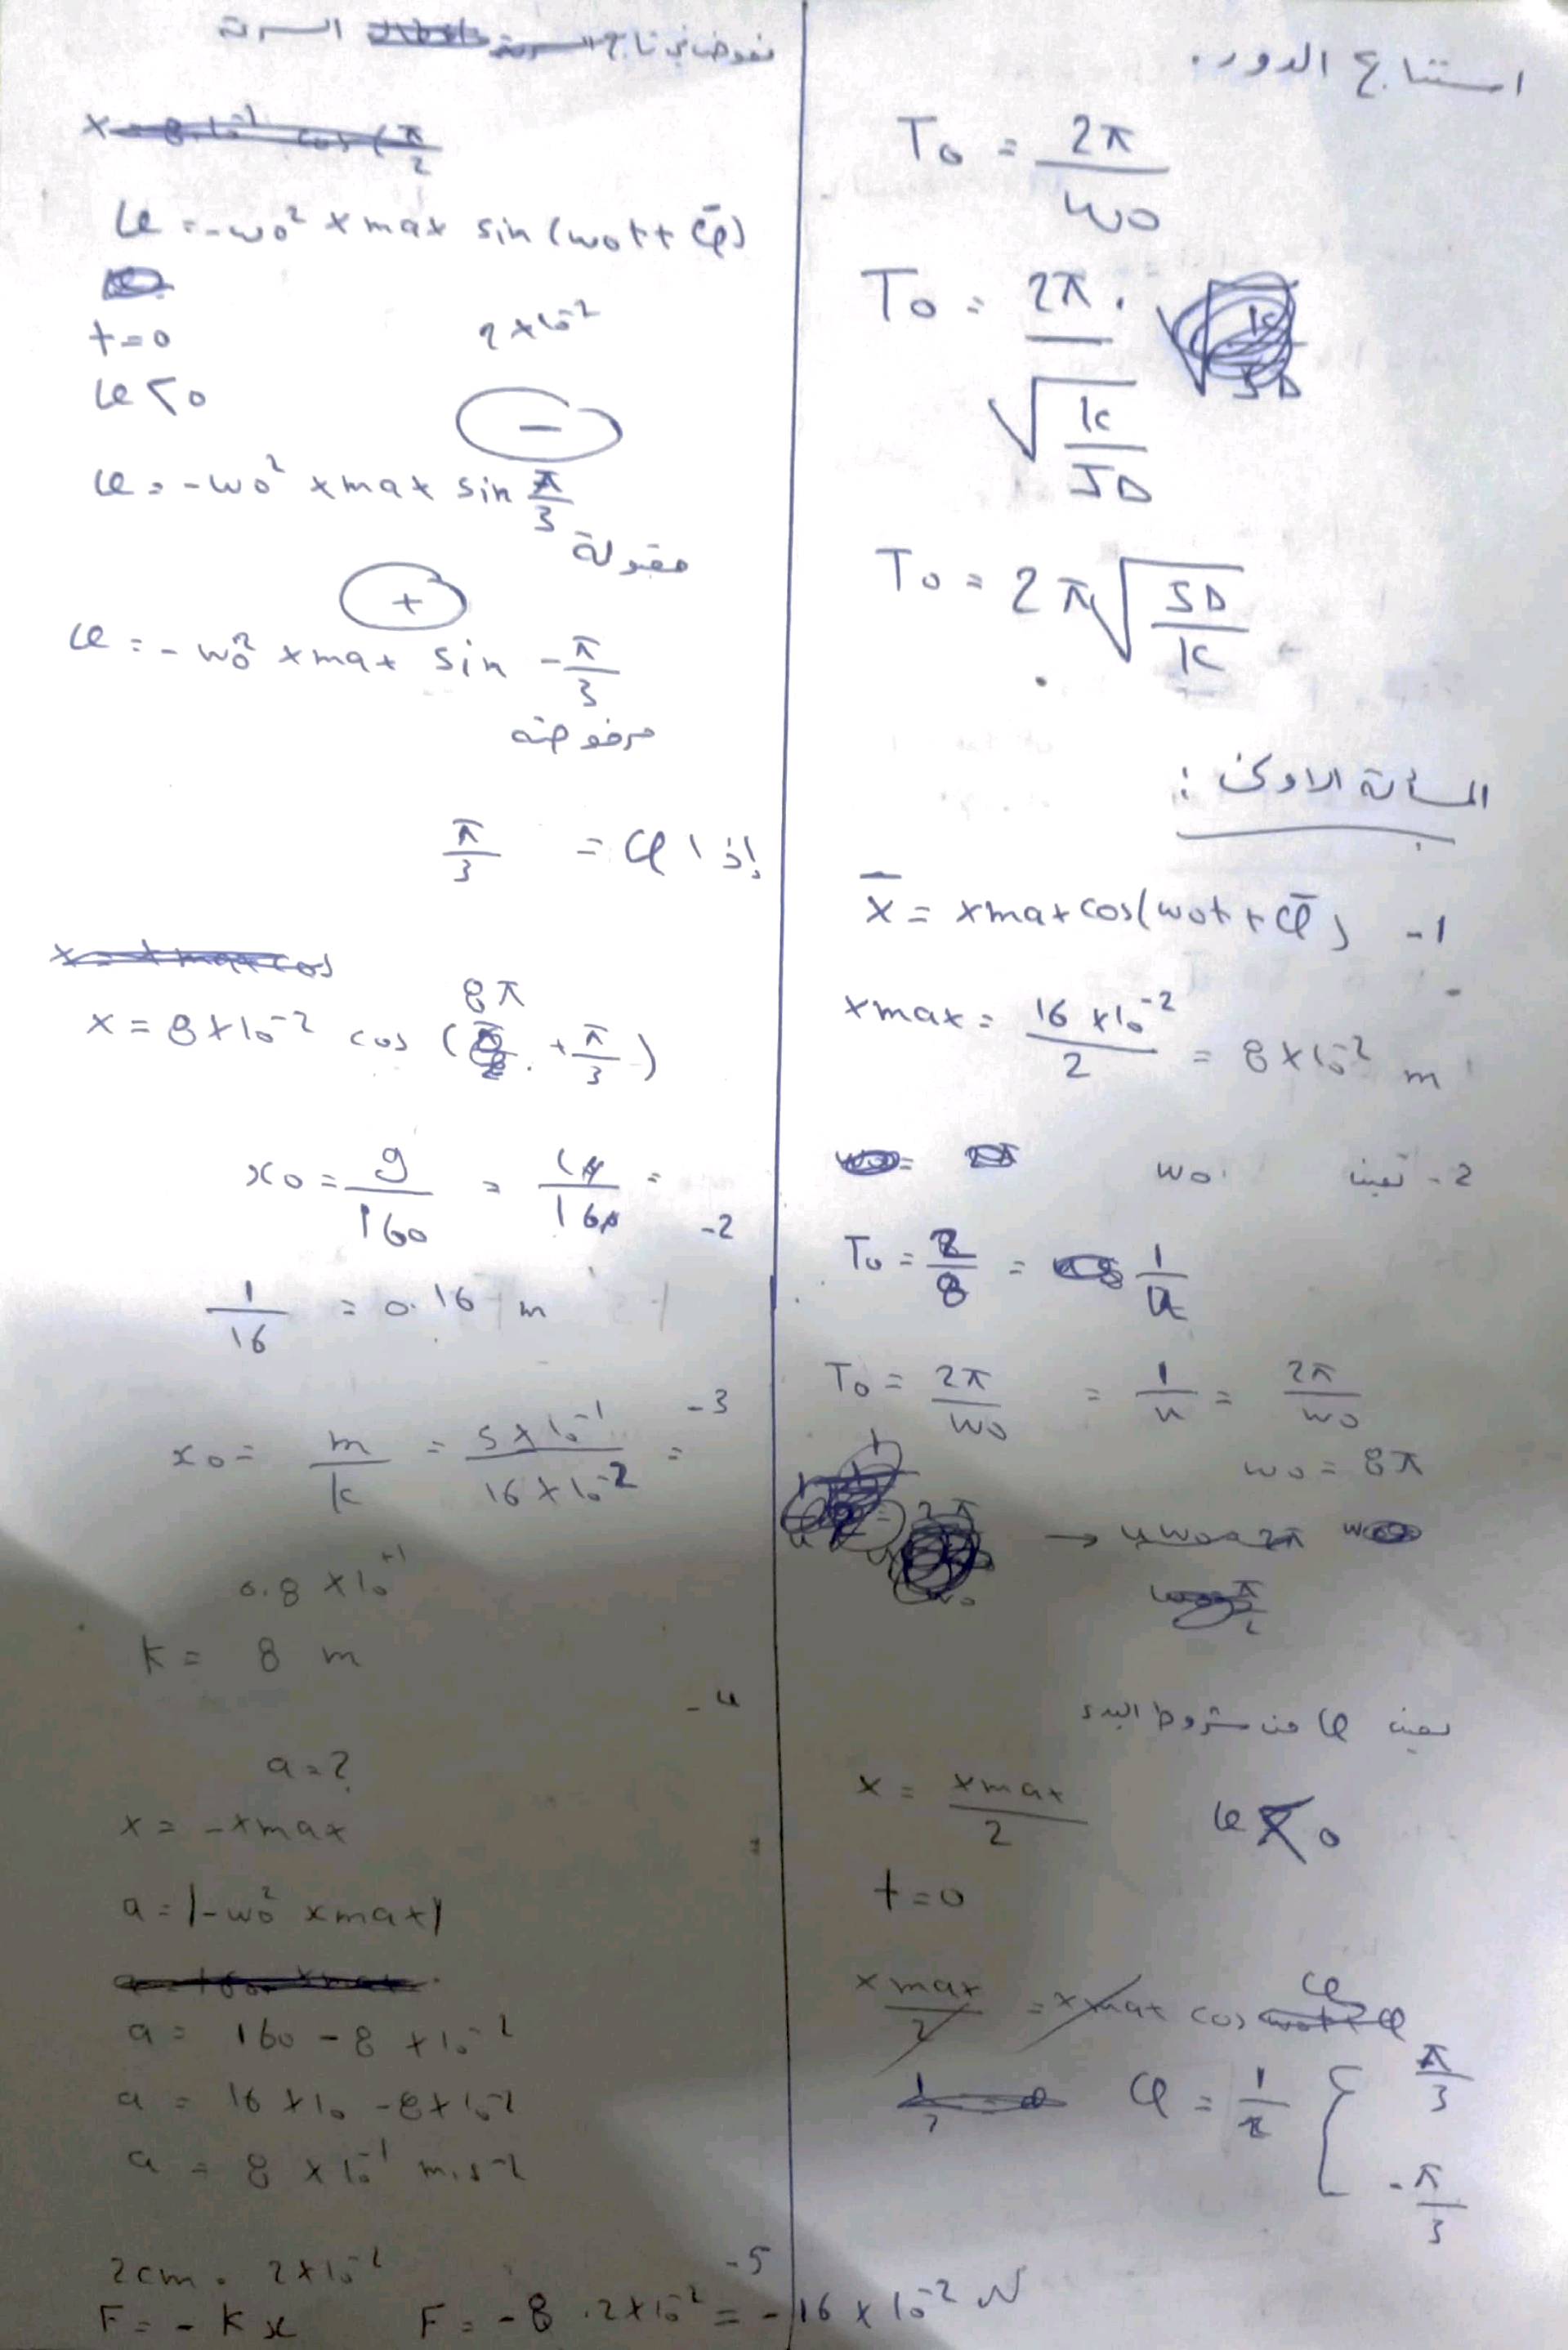 استنتاج الدور.
T0 = 2π / w0
T0 = 2π / √(k / ID)
T0 = 2π √(ID / k)
المسألة الاولى :
1- x̄ = xmax cos(w0t + φ̄)
xmax = 16 × 10^-2 / 2 = 8 × 10^-2 m
2- نعين w0
T0 = 2/8 = 1/4
T0 = 2π/w0 = 1/4 = 2π/w0
w0 = 8π
نعين φ من شروط البدء
x = xmax / 2
t = 0
xmax/2 = xmax cos φ
φ = 1/2 { π/3
- π/3
نعوض في تابع السرعة
v = -w0^2 xmax sin (w0t + φ̄)
t = 0
2 × 10^-2
v < 0
-
v = -w0^2 xmax sin π/3
مقبولة
+
v = -w0^2 xmax sin -π/3
مرفوضة
إذا φ = π/3
x = 8 × 10^-2 cos (8π + π/3)
2- x0 = g/160 = 10/160 =
1/16 = 0.16 m
3- x0 = m/k = 5 × 10^-1 / 16 × 10^-2 =
0.8 × 10^+1
k = 8 m
4-
a = ?
x = -xmax
a = |-w0^2 xmax|
a = 160 - 8 × 10^-2
a = 16 × 10 - 8 × 10^-2
a = 8 × 10^-1 m.s^-2
5-
2cm = 2 × 10^-2
F = - k x F = -8 . 2 × 10^-2 = -16 × 10^-2 N